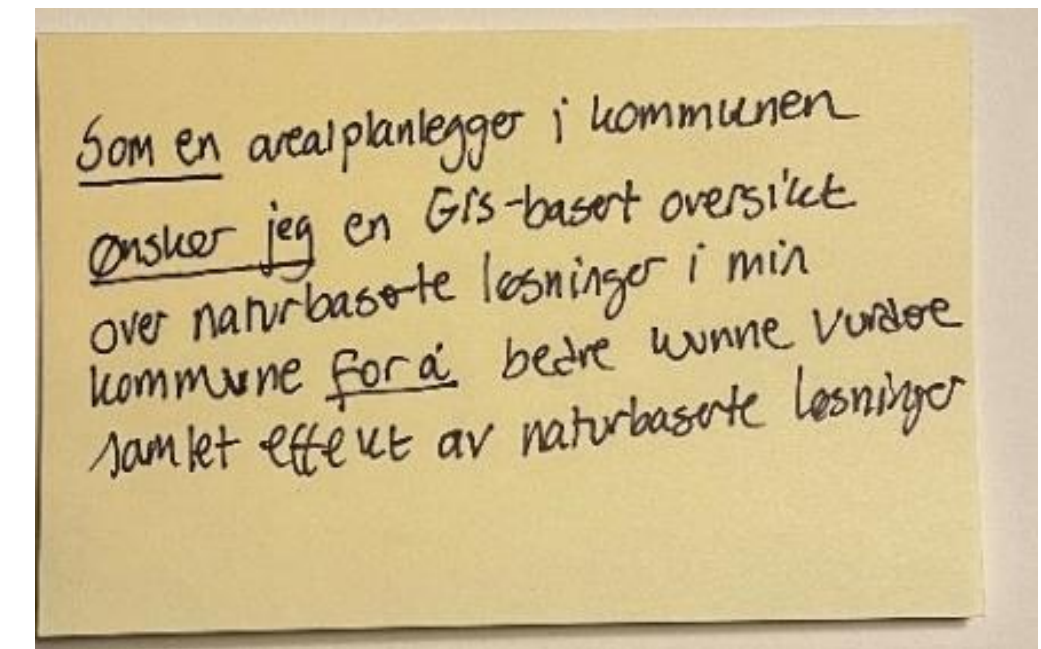 Som en arealplanlegger i kommunen
ønsker jeg en GIS-basert oversikt
over naturbaserte løsninger i min
kommune for å bedre kunne vurdere
samlet effekt av naturbaserte løsninger